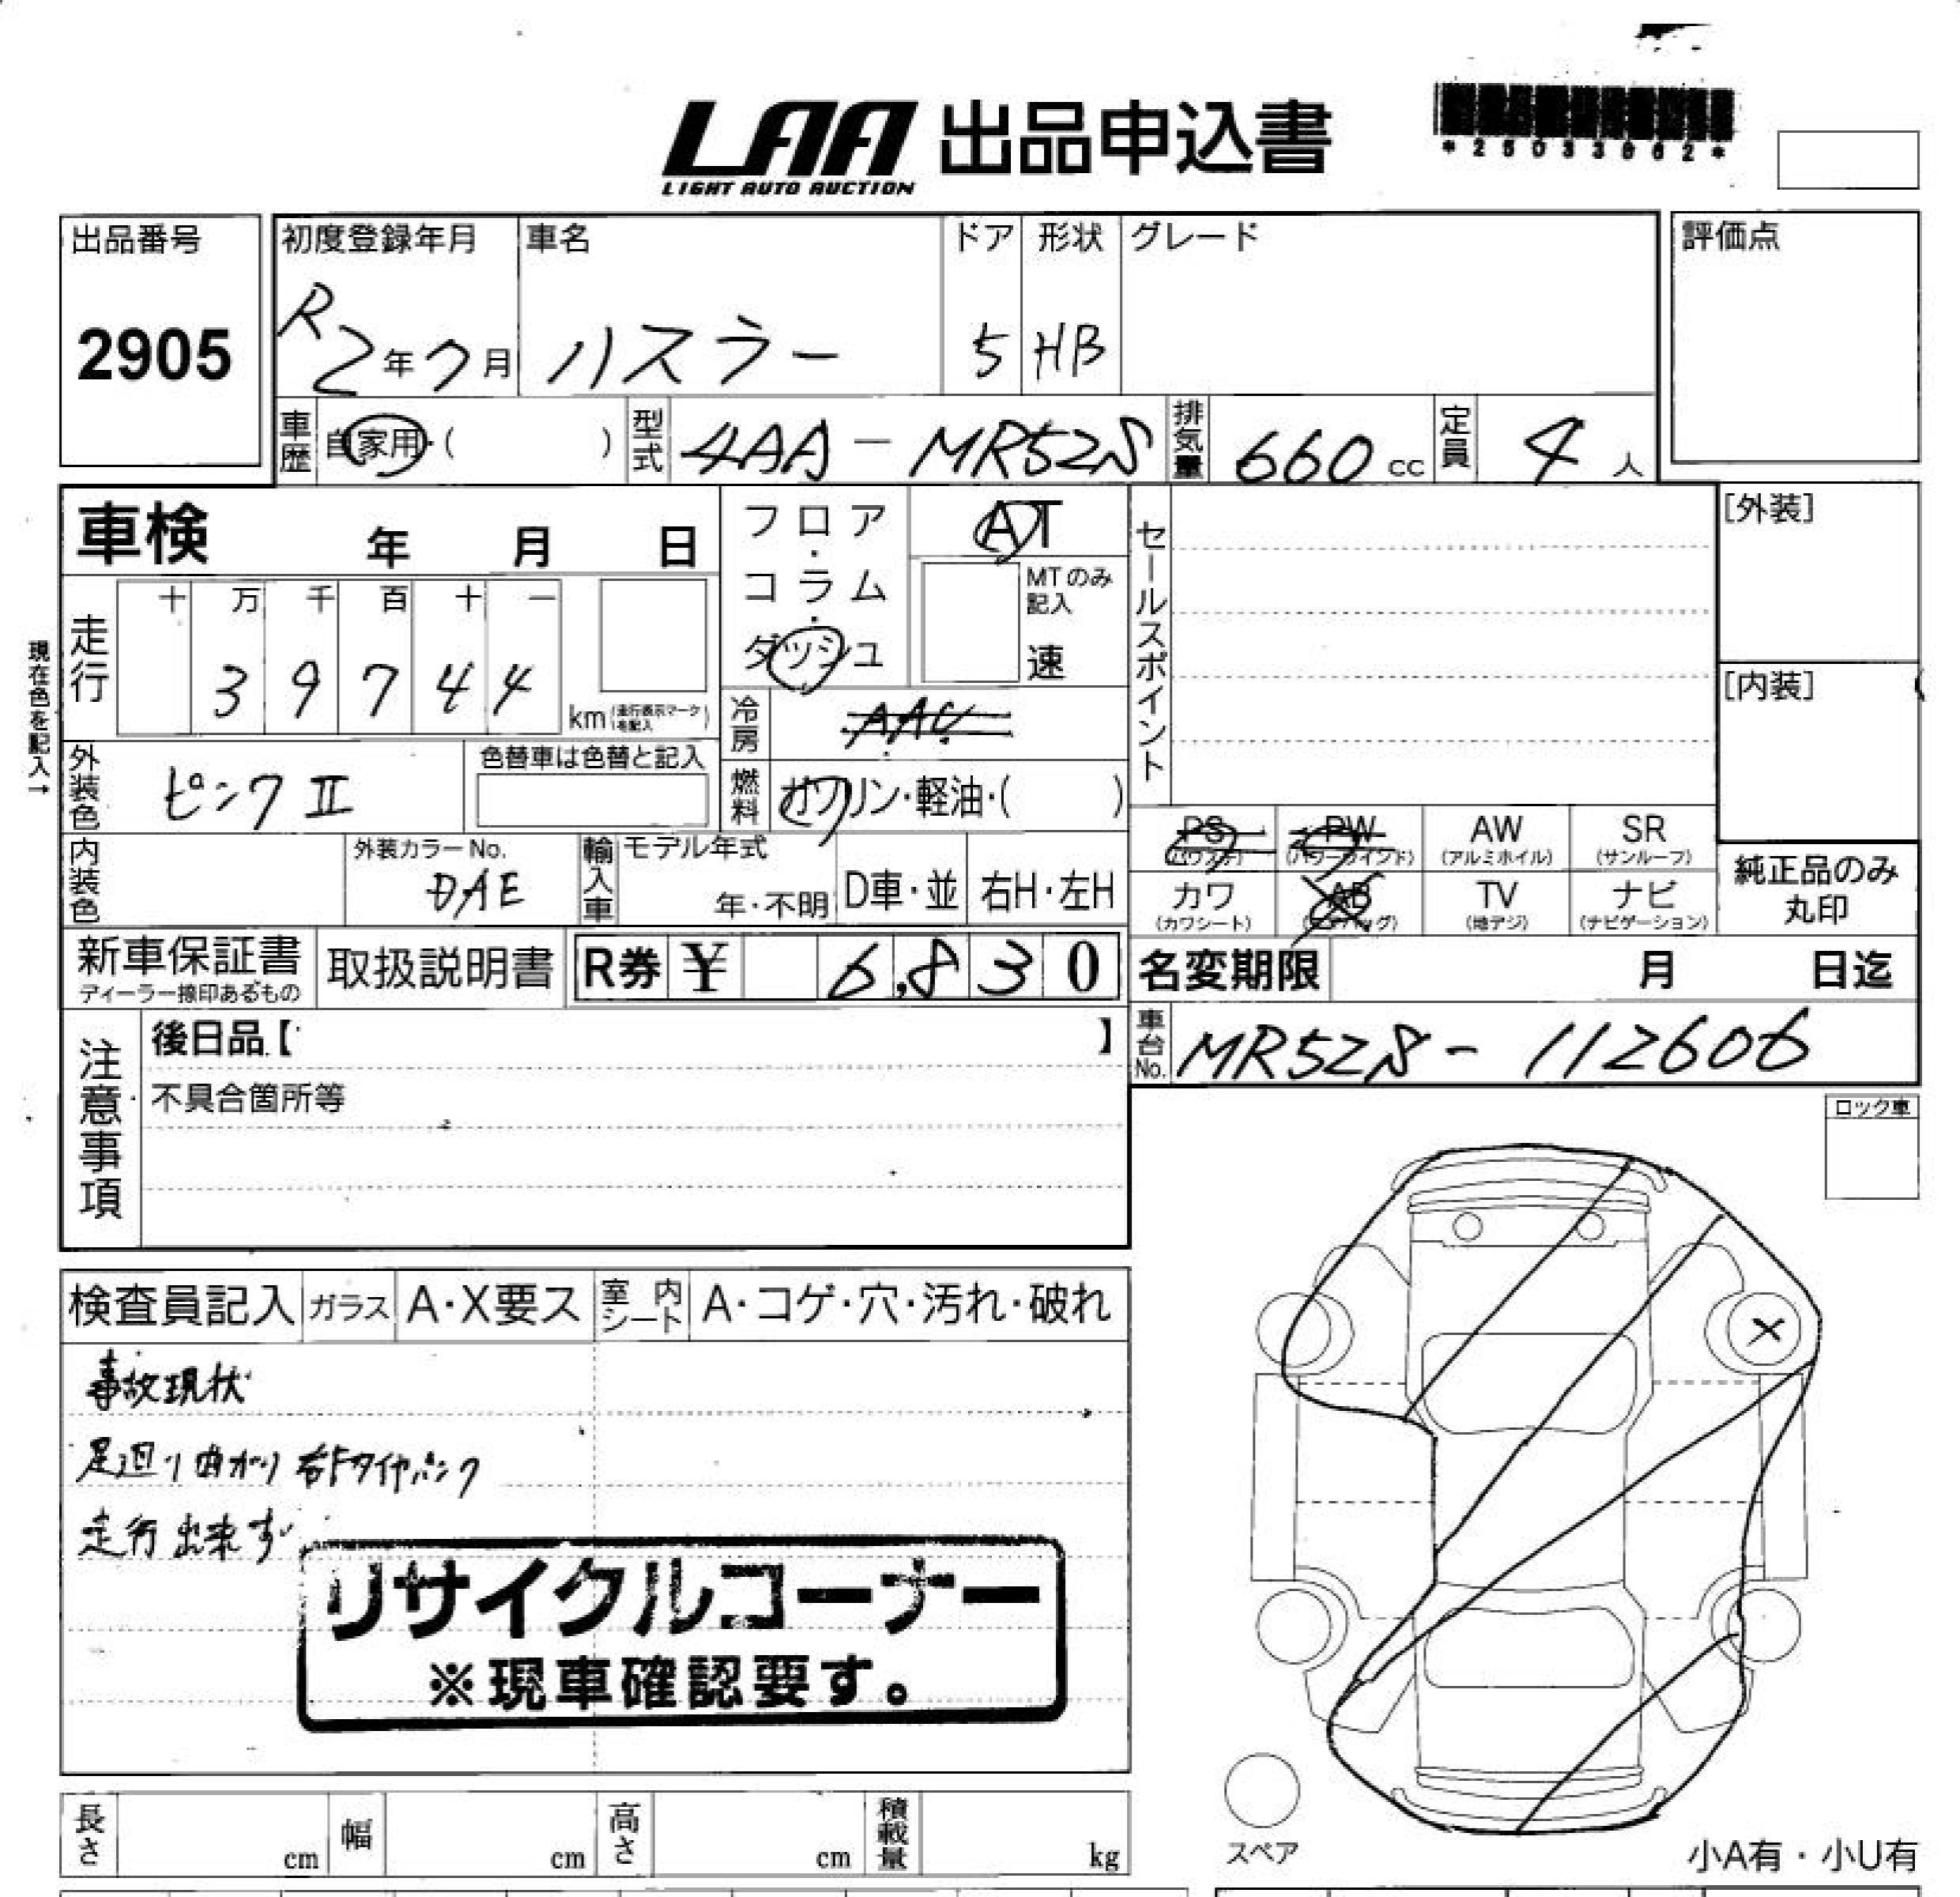 LAA 出品申込書
LIGHT AUTO AUCTION
出品番号
2905
初度登録年月
R2年7月
車名
ハスラー
ドア
5
形状
HB
グレード
評価点
車歴
自家用・( )
型式
4AA-MR52S
排気量
660cc
定員
4人
車検 年 月 日
フロア・コラム・ダッシュ
AT
MTのみ記入
速
セールスポイント
[外装]
[内装]
現在色を記入→
走行
十 万 千 百 十 一
3 9 7 4 4
km(走行表示マークを記入)
冷房
AAC
燃料
ガソリン・軽油・( )
外装色
ピンクⅡ
色替車は色替と記入
内装色
外装カラーNo.
DAE
輸入車
モデル年式
年・不明
D車・並
右H・左H
PS
(パワステ)
PW
(パワーウインド)
AW
(アルミホイル)
SR
(サンルーフ)
カワ
(カワシート)
AB
(エアバッグ)
TV
(地デジ)
ナビ
(ナビゲーション)
純正品のみ
丸印
新車保証書
ディーラー捺印あるもの
取扱説明書
R券 ¥ 6,830
名変期限 月 日迄
注意事項
後日品【 】
不具合箇所等
車台No.
MR52S-112606
ロック車
検査員記入
ガラス
A・X要ス
室内シート
A・コゲ・穴・汚れ・破れ
事故現状
足廻り曲がり 右Fタイヤパンク
走行出来ず
リサイクルコーナー
※現車確認要す。
×
長さ cm
幅 cm
高さ cm
積載量 kg
スペア
小A有・小U有